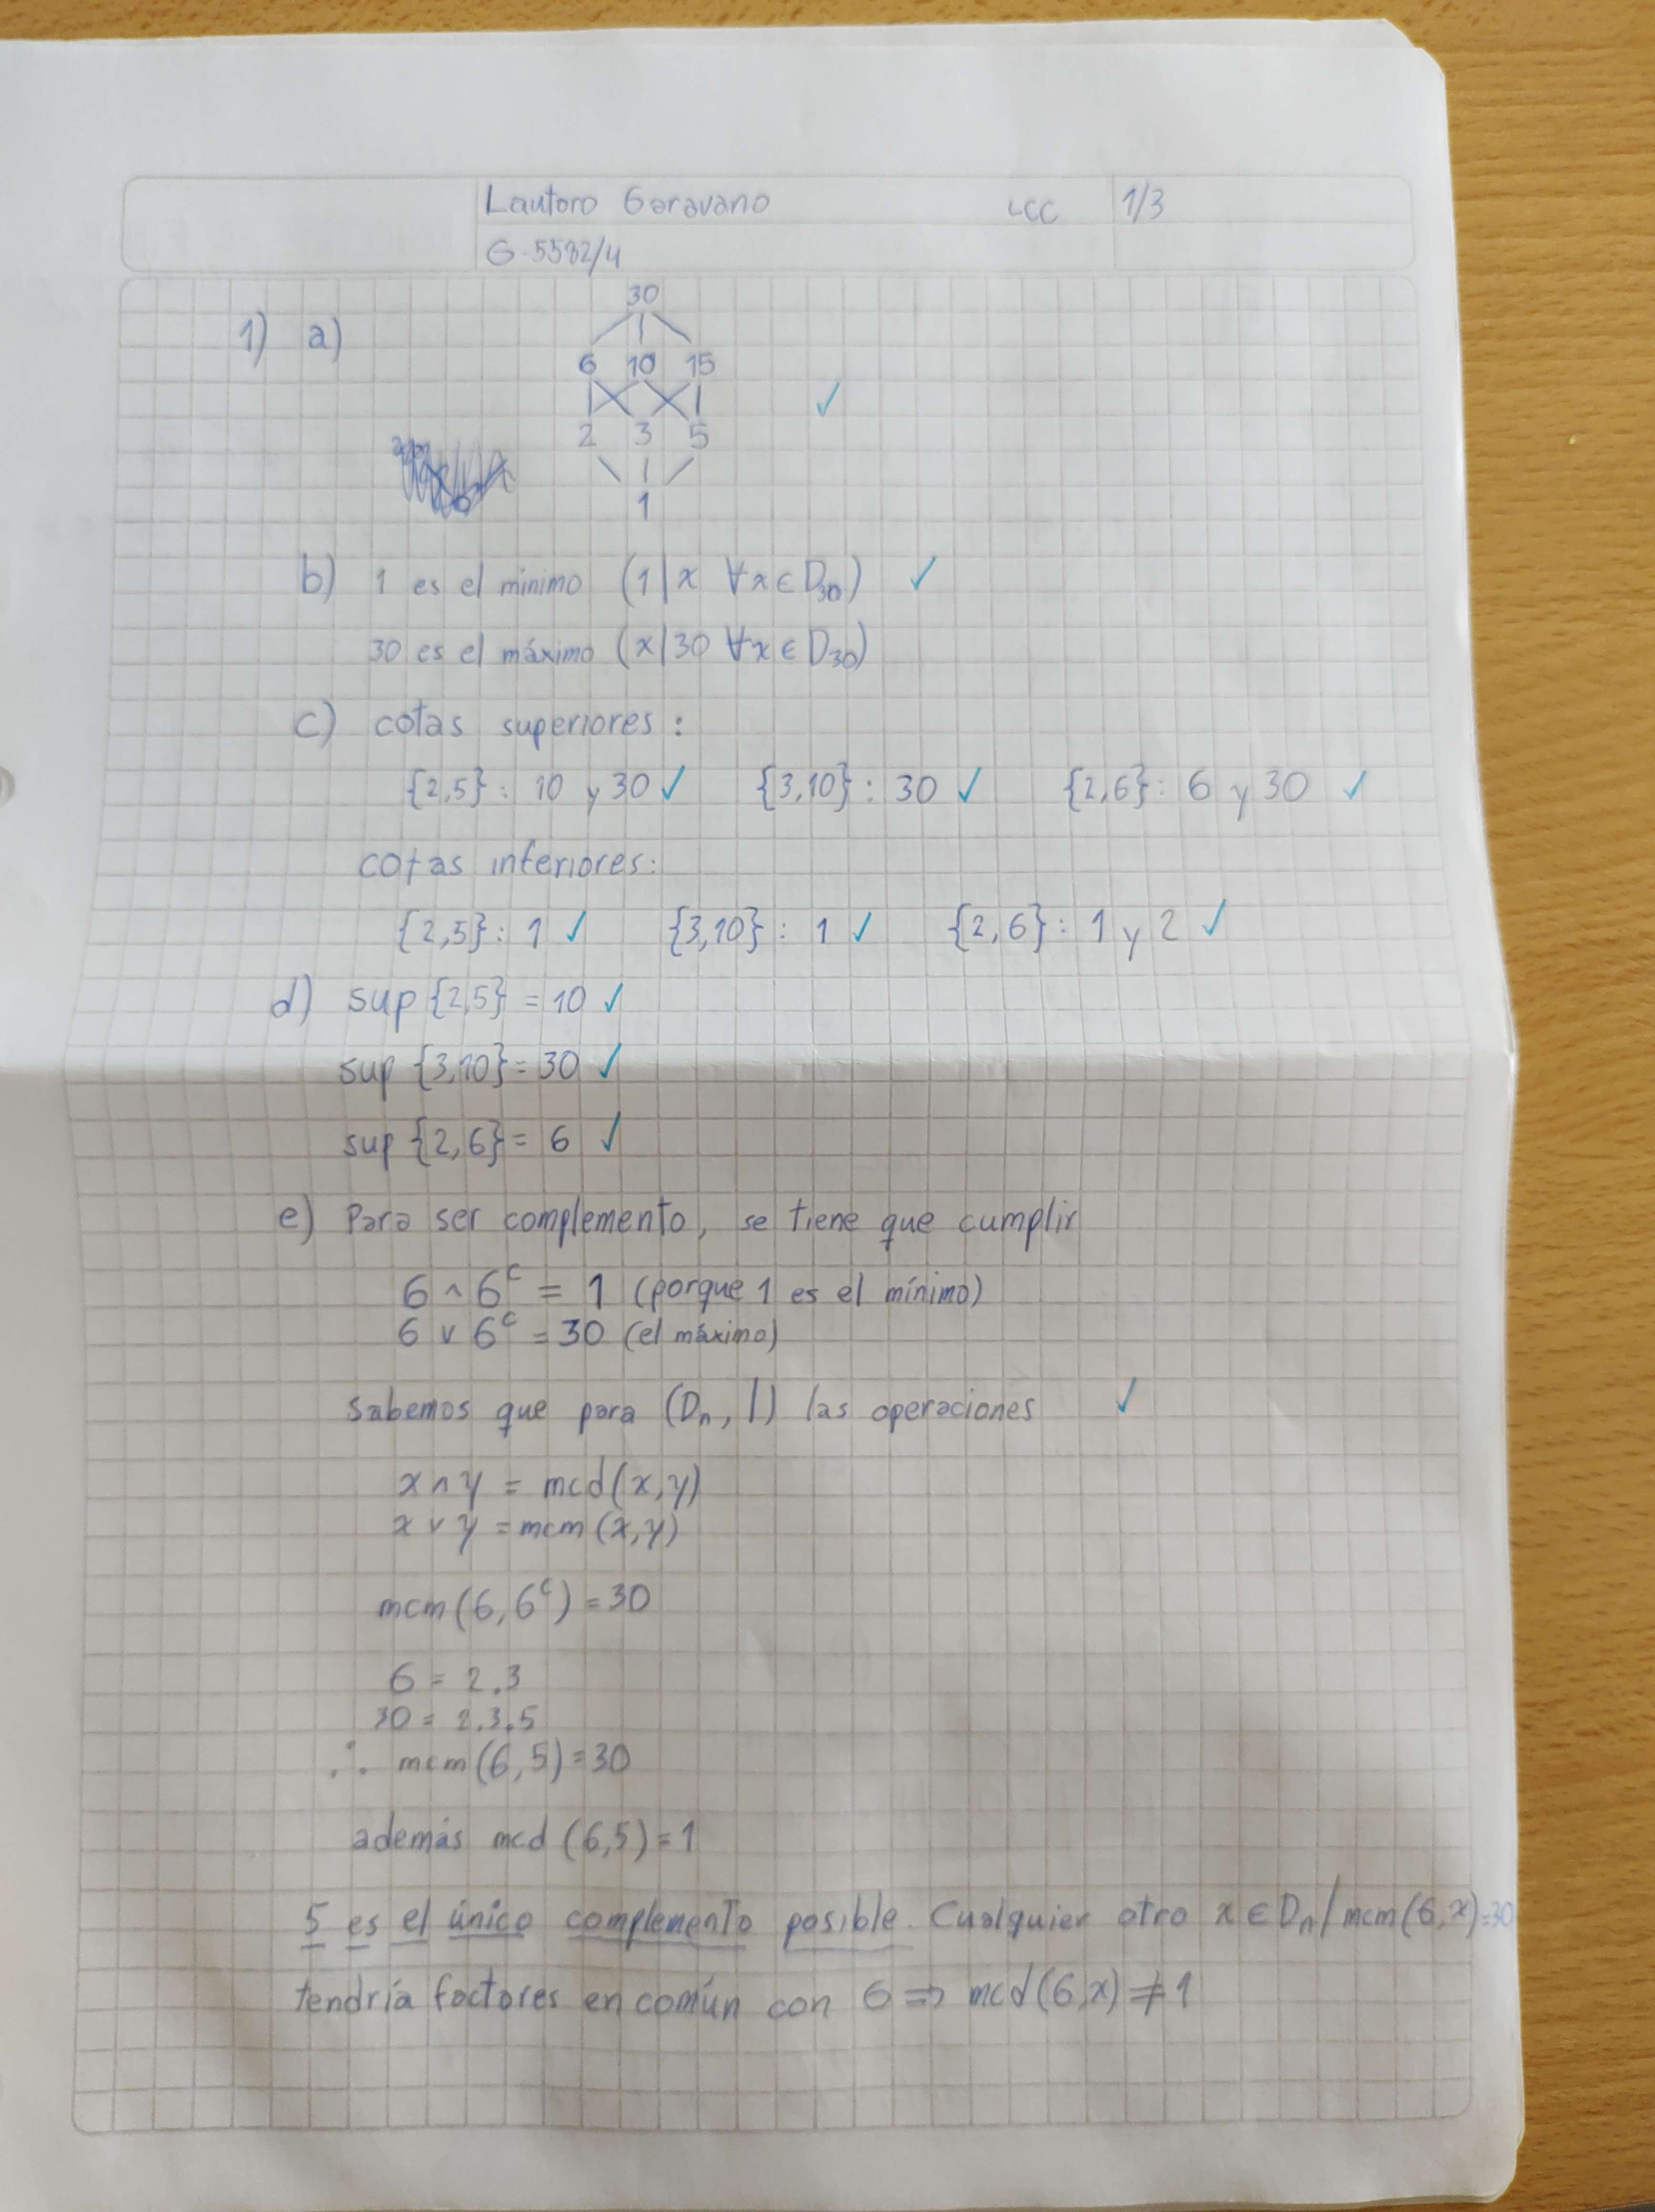 Lautaro Garavano LCC 1/3
G-5582/4
1) a)
30
6 10 15
2 3 5
1
b) 1 es el mínimo (1 | x ∀x ∈ D₃₀) ✓
30 es el máximo (x | 30 ∀x ∈ D₃₀)
c) cotas superiores:
{2,5}: 10 y 30 ✓ {3,10}: 30 ✓ {2,6}: 6 y 30 ✓
cotas inferiores:
{2,5}: 1 ✓ {3,10}: 1 ✓ {2,6}: 1 y 2 ✓
d) sup {2,5} = 10 ✓
sup {3,10} = 30 ✓
sup {2,6} = 6 ✓
e) Para ser complemento, se tiene que cumplir
6 ∧ 6ᶜ = 1 (porque 1 es el mínimo)
6 ∨ 6ᶜ = 30 (el máximo)
Sabemos que para (Dₙ, |) las operaciones ✓
x ∧ y = mcd(x,y)
x ∨ y = mcm(x,y)
mcm(6,6ᶜ) = 30
6 = 2.3
30 = 2.3.5
∴ mcm(6,5) = 30
además mcd (6,5) = 1
5 es el único complemento posible. Cualquier otro x ∈ Dₙ / mcm(6,x)=30
tendría factores en común con 6 ⇒ mcd(6,x) ≠ 1